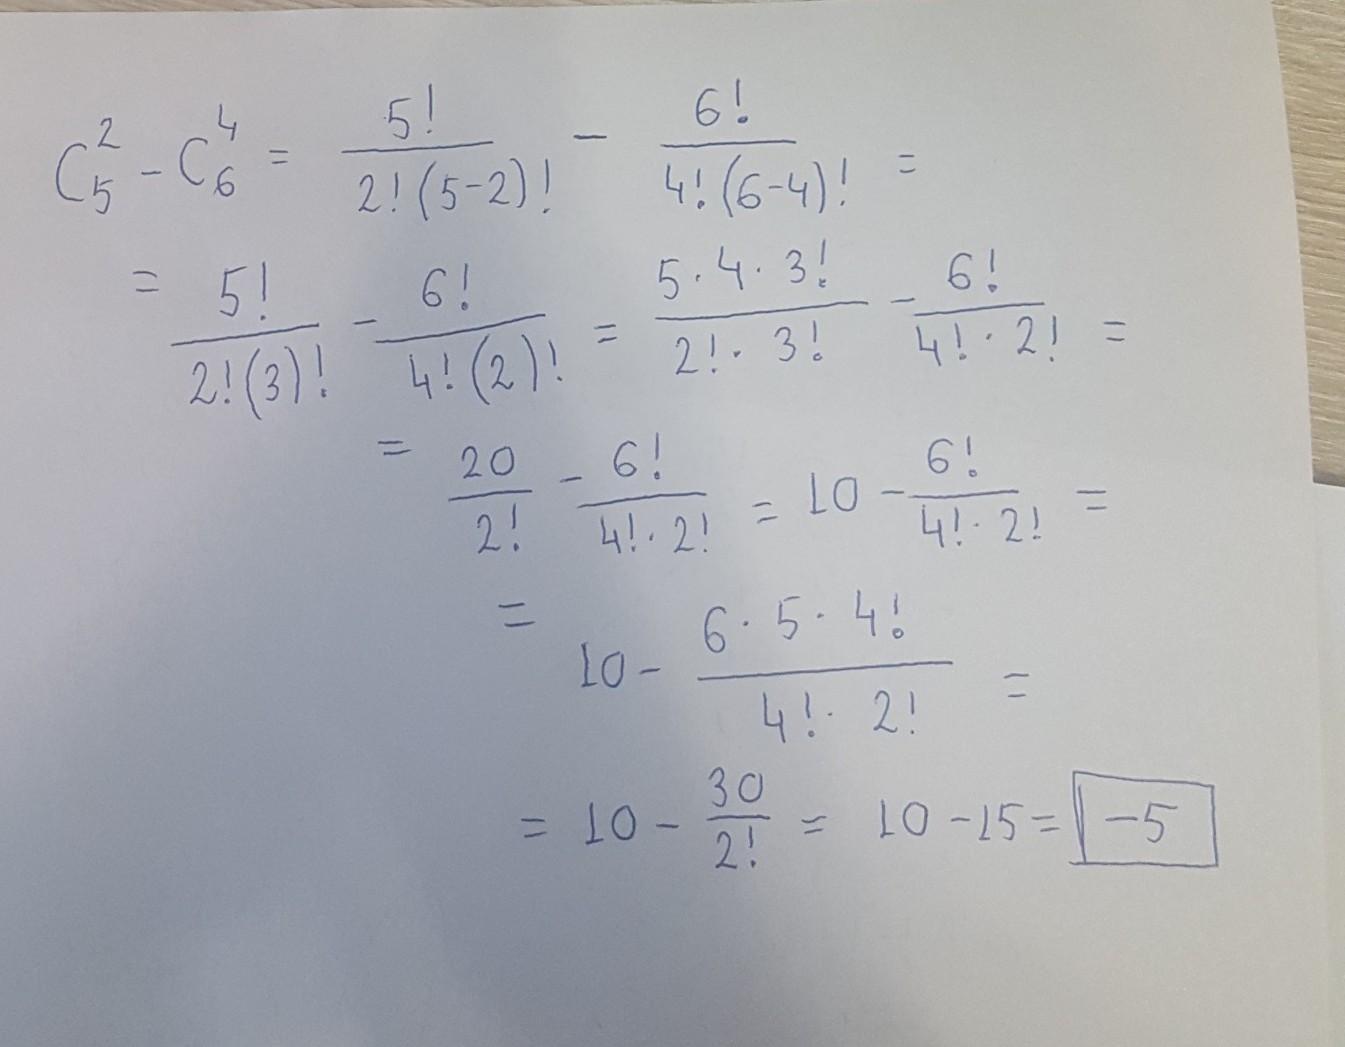 C₅² - C₆⁴ = 5!/(2!(5-2)!) - 6!/(4!(6-4)!) =
= 5!/(2!(3)!) - 6!/(4!(2)!) = (5·4·3!)/(2!·3!) - 6!/(4!·2!) =
= 20/2! - 6!/(4!·2!) = 10 - 6!/(4!·2!) =
= 10 - (6·5·4!)/(4!·2!) =
= 10 - 30/2! = 10 - 15 = -5